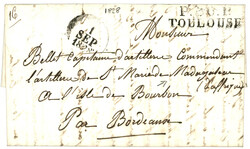 16
1828
1
SEP
1828
P. 30. P.
TOULOUSE
Monsieur
Bellet Capitaine d'artillerie Commandant
l'artillerie de Ste Marie de Madagascar
à l'isle de Bourbon
(affrique)
Par Bordeaux